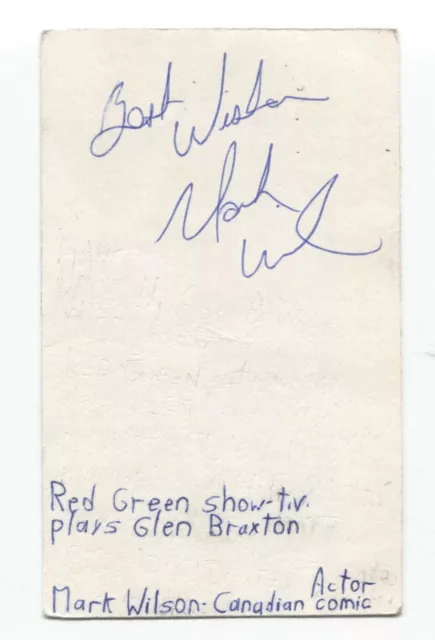 Best Wishes
Mark
Wil
Red Green show-t.v.
plays Glen Braxton
Actor
Mark Wilson-Canadian comic